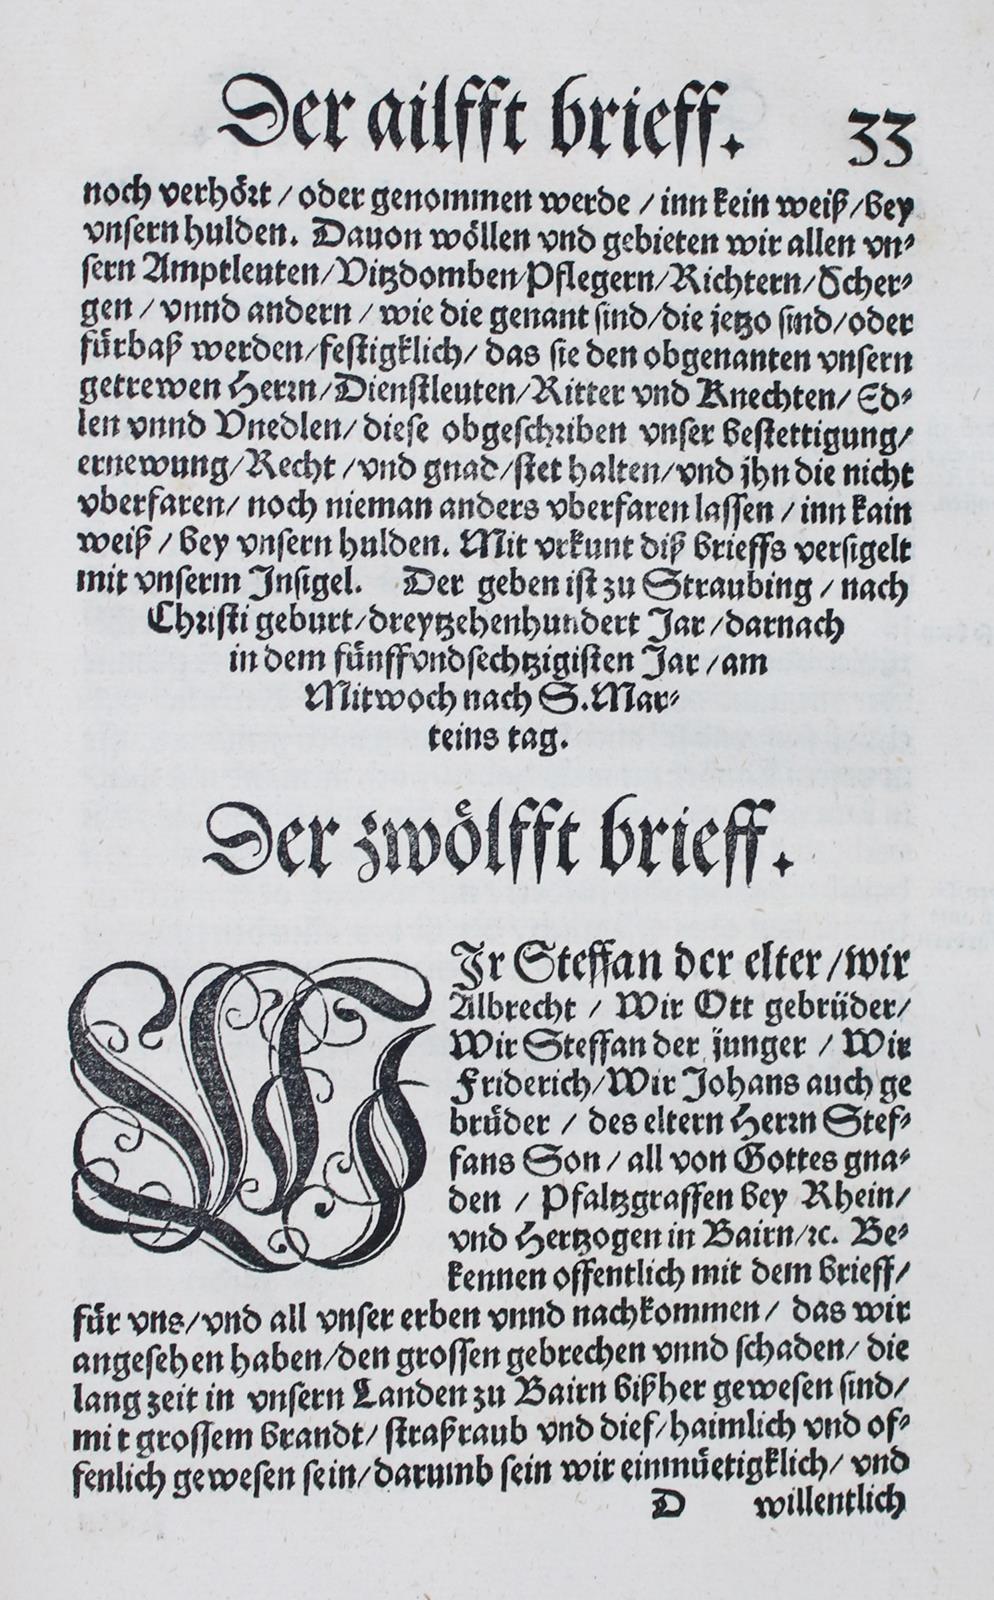 Der ailfft brieff. 33
noch verhört / oder genommen werde / inn kein weiß / bey
vnsern hulden. Dauon wöllen vnd gebieten wir allen vn⸗
sern Amptleuten / Vitzdomben / Pflegern / Richtern / Scher⸗
gen / vnnd andern / wie die genant sind / die jetzo sind / oder
fürbaß werden / festigklich / das sie den obgenanten vnsern
getrewen Herrn / Dienstleuten / Ritter vnd Knechten / Ed⸗
len vnnd Vnedlen / diese obgeschriben vnser bestettigung /
ernewung / Recht / vnd gnad / stet halten / vnd jhn die nicht
vberfaren / noch nieman anders vberfaren lassen / inn kain
weiß / bey vnsern hulden. Mit vrkunt diß brieffs versigelt
mit vnserm Insigel. Der geben ist zu Straubing / nach
Christi geburt / dreytzehenhundert Jar / darnach
in dem fünffvndsechtzigisten Jar / am
Mitwoch nach S. Mar⸗
teins tag.
Der zwölfft brieff.
WIr Steffan der elter / wir
Albrecht / Wir Ott gebrüder /
Wir Steffan der junger / Wir
Friderich / Wir Johans auch ge
brüder / des eltern Herrn Stef⸗
fans Son / all von Gottes gna⸗
den / Pfaltzgraffen bey Rhein /
vnd Hertzogen in Bairn / ꝛc. Be⸗
kennen offentlich mit dem brieff /
für vns / vnd all vnser erben vnnd nachkommen / das wir
angesehen haben / den grossen gebrechen vnnd schaden / die
lang zeit in vnsern Landen zu Bairn bißher gewesen sind /
mit grossem brandt / straßraub vnd dief / haimlich vnd of⸗
fenlich gewesen sein / darumb sein wir einmüetigklich / vnd
D willentlich